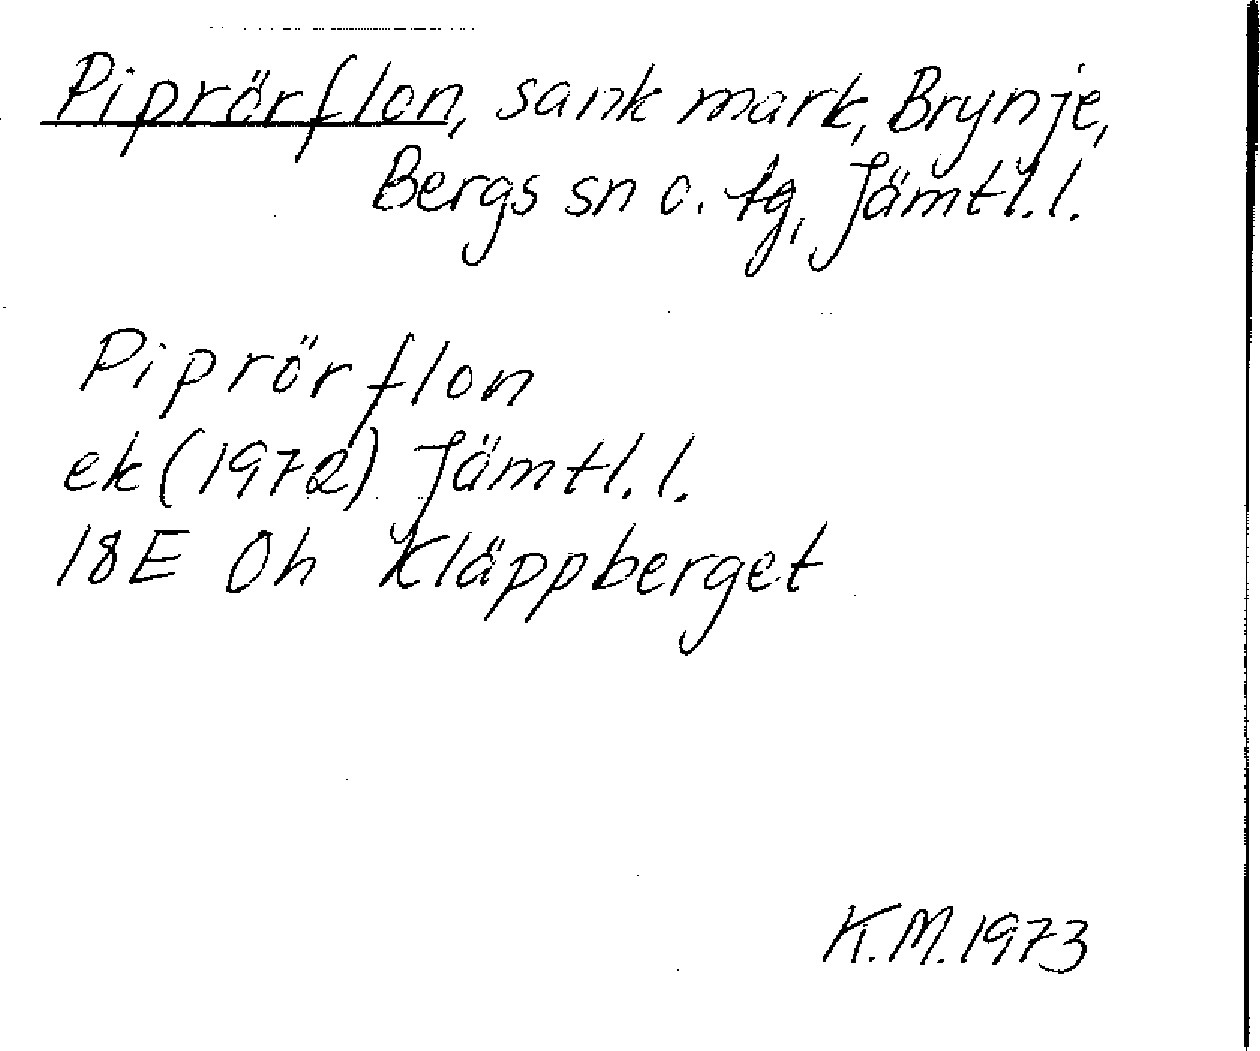 Piprörflon, sank mark, Brynje,
Bergs sn o. tg, Jämtl.l.
Piprörflon
ek (1972) Jämtl.l.
18E 0h Kläppberget
K.M.1973